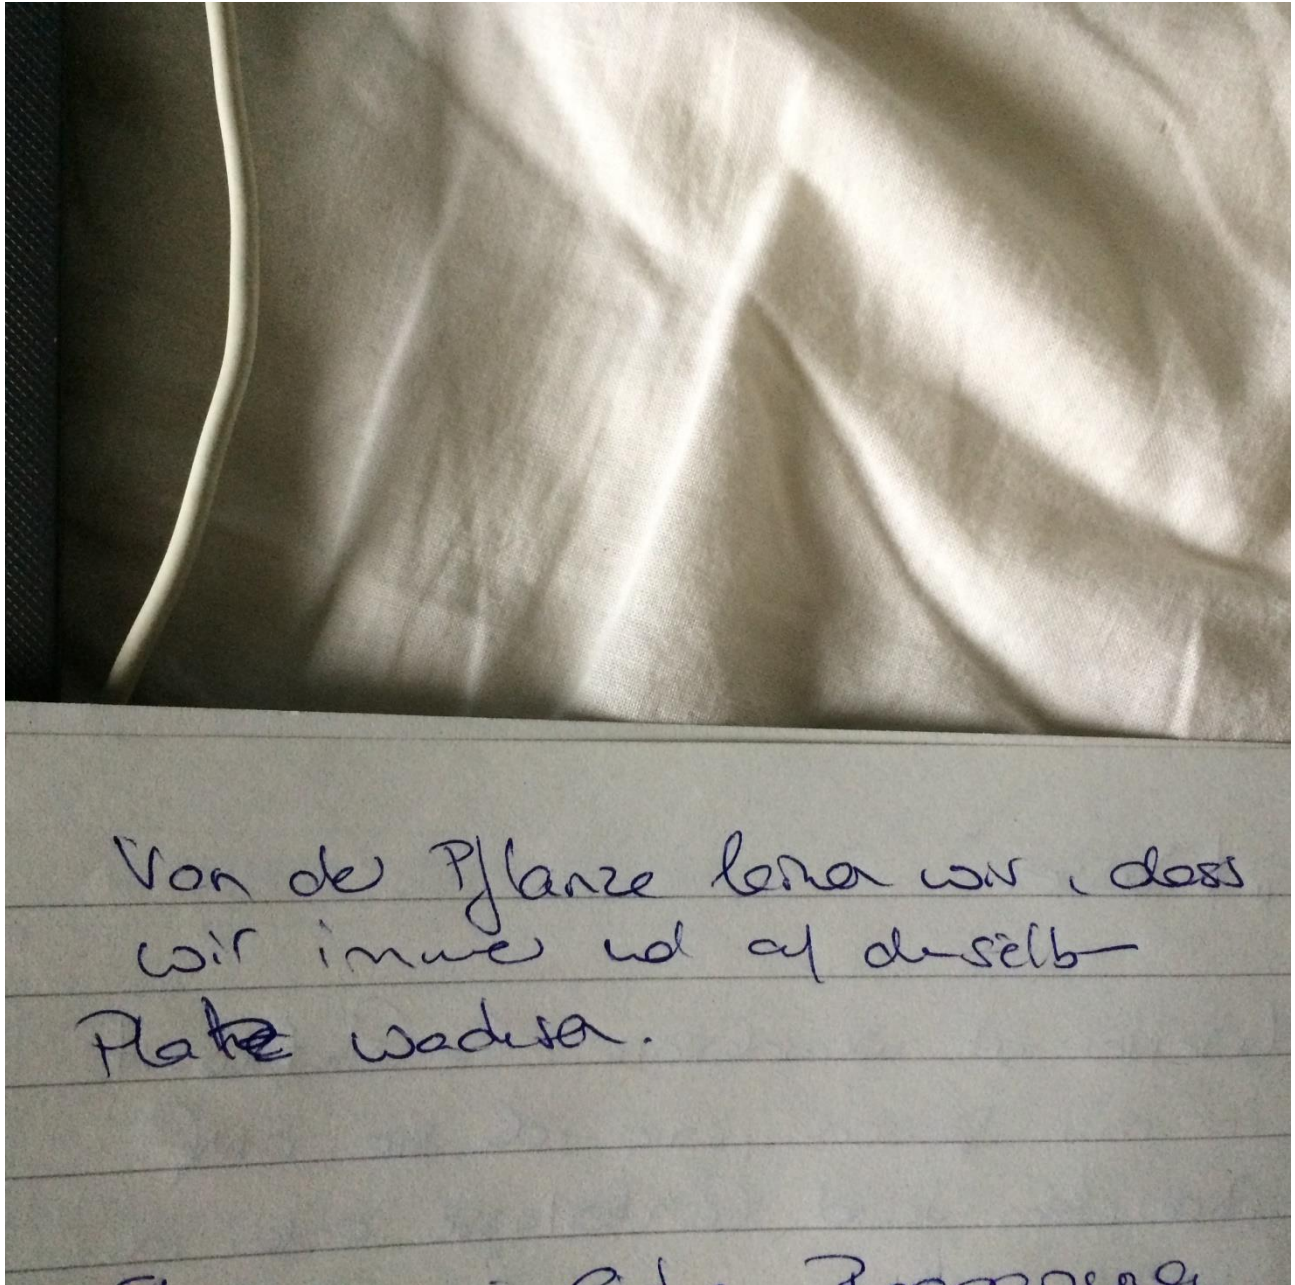 Von der Pflanze lernen wir, dass
wir immer und auf demselben
Platz wachsen.